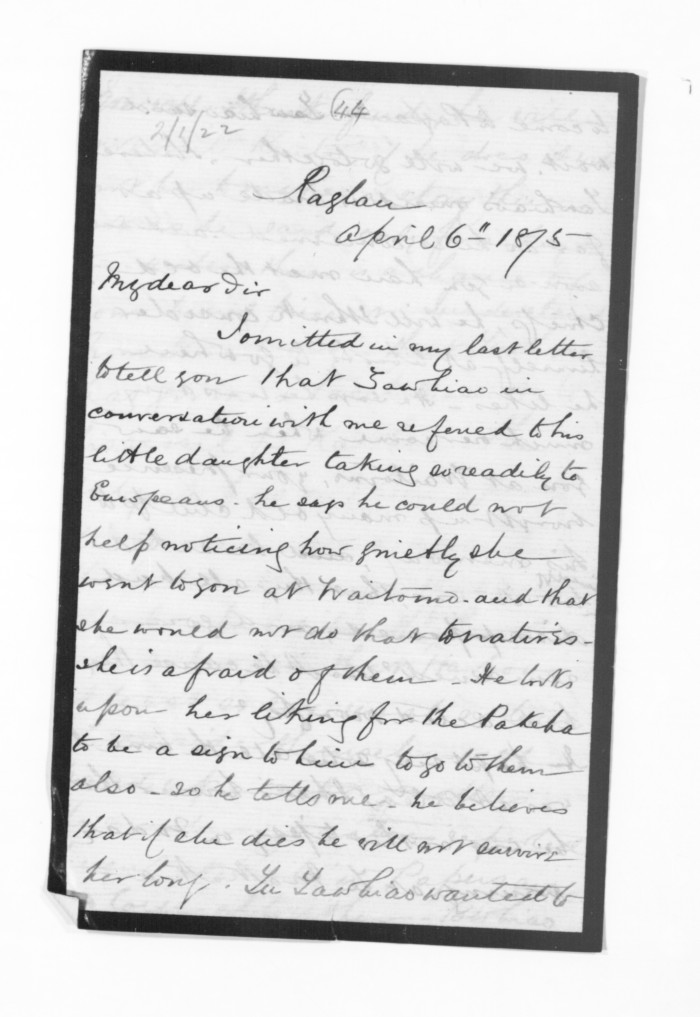 44
2/1/22
Raglan
April 6" 1875
My dear Sir
I omitted in my last letter
to tell you that Tawhiao in
conversation with me refered to his
little daughter taking so readily to
Europeans. he says he could not
help noticing how quietly she
went to you at Waitomo - and that
she would not do that to natives -
she is afraid of them - He looks
upon her liking for the Pakeha
to be a sign to him to go to them
also - so he tells me - he believes
that if she dies he will not survive
her long. Tu Tawhiao wanted to